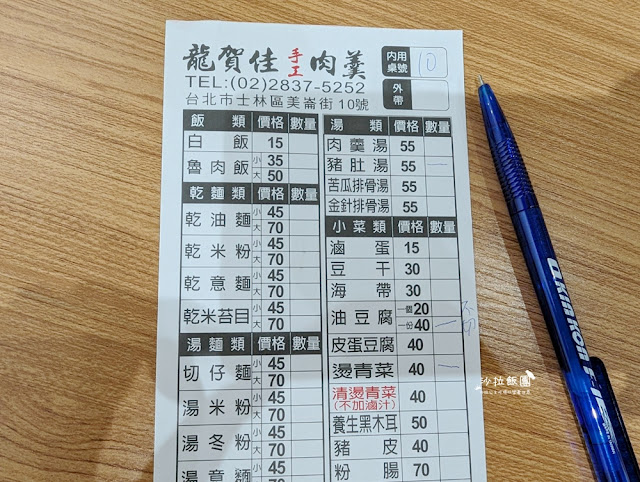 龍賀佳 手工 肉羹
內用桌號 10
TEL:(02)2837-5252
外帶
台北市士林區美崙街 10號
飯類 價格 數量
白飯 15
魯肉飯 小 35
大 50
乾麵類 價格 數量
乾油麵 小 45
大 70
乾米粉 小 45
大 70
乾意麵 小 45
大 70
乾米苔目 小 45
大 70
湯麵類 價格 數量
切仔麵 小 45
大 70
湯米粉 小 45
大 70
湯冬粉 小 45
大 70
湯意麵 小 45
大 70
湯類 價格 數量
肉羹湯 55
豬肚湯 55 一
苦瓜排骨湯 55
金針排骨湯 55
小菜類 價格 數量
滷蛋 15
豆干 30
海帶 30
油豆腐 一個 20
一份 40 一
皮蛋豆腐 40
燙青菜 40 一
清燙青菜 40
(不加滷汁)
養生黑木耳 50
豬皮 40
粉腸 70
沙拉飯團